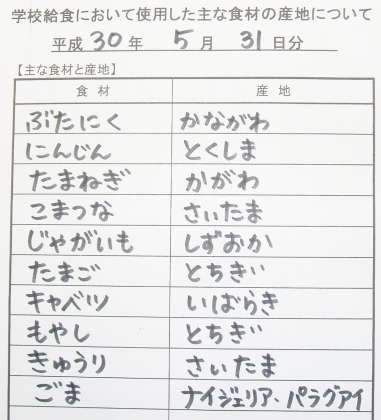 学校給食において使用した主な食材の産地について
平成 30 年 5 月 31 日分
【主な食材と産地】
食材 産地
ぶたにく かながわ
にんじん とくしま
たまねぎ かがわ
こまつな さいたま
じゃがいも しずおか
たまご とちぎ
キャベツ いばらき
もやし とちぎ
きゅうり さいたま
ごま ナイジェリア・パラグアイ